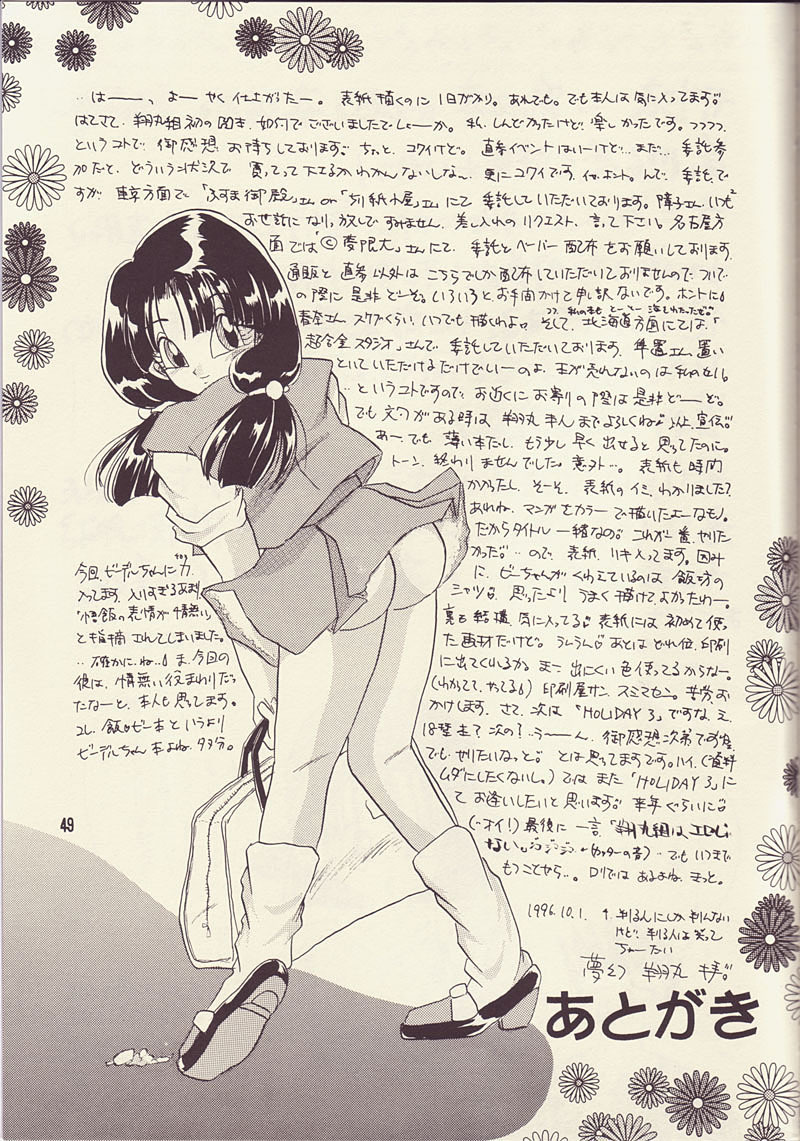 ‥はーー、よーやく仕上がったー。表紙描くのに1日がかり。あれでも。でも本人は気に入ってます。
はてさて、翔丸組初の、如何でございましたでしょーか。私、しんどかったけど、楽しかったです。つつつつ
というコトで御感想お待ちしております。ちょっと、コワイけど。直参イベントはいーけど…また…委託参
加だと、どういう状況で買って下さるかわかんないしな〜。更にコワイです。イヤ、ホント。んで、委託で
すが東京方面で「ふすま御殿」さんや「切紙小屋」さんにて委託していただいております。障子さん、いつも
お世話になりっ放しですみません。差し入れのリクエスト、言って下さい。名古屋方
面では「©夢限大」さんにて、委託とペーパー配布をお願いしております。
通販と直参以外はこちらでしか配布していただいておりませんので、ついで
の際に是非どーぞ。いろいろとお手間かけて申し訳ないです。ホントに。
春奈さん、スケブくらい、いつでも描くわよ。そして、北海道方面にては、「
超合金スタジオ」さんで委託していただいております。隼置さん、置い
といていただけるだけでいーのよ、本が売れないのは私のせい。
‥というコトですので、お近くにお寄りの際は是非どーぞ。
でも文句がある時は、翔丸までよろしくね。以上、宣伝。
あー、でも薄い本だし、もう少し早く出せると思ってたのに。
トーン、終わりませんでした。意外…。表紙も時間
かかったし。そーそ、表紙のイミ、わかりました?
あれね、マンガをカラーで描いたよーなモノ。
だからタイトル一緒なの。これが一番、やりた
かった。‥ので、表紙、リキ入ってます。因み
に、ビーちゃんがくわえているのは飯坊の
シャツ。思ったよりうまく描けてよかったわー。
裏も結構、気に入ってる。表紙には初めて使っ
た画材だけど。らんらん あとはどれ位、印刷
に出てくれるか。まー出にくい色使ってるからなー。
(わかってて、やってる)印刷屋サン、スミマセン。苦労お
かけします。さて、次は「HOLIDAY 3」ですな。え、
18禁本?次の?う〜ん、御感想次第です。
でも、やりたいなっと。とは思ってますです。ハイ。(資料
ムダにしたくないし。)ではまた「HOLIDAY 3」に
てお逢いしたいと思います。来年ぐらいに。
(オイ!)最後に一言、「翔丸組はエロじゃ
ない。」ジジジジ…(カッターの音)‥でもいつまで
もつことやら…。ロリではあるよね、きっと。
1996.10.1.
判る人にしか判んない
けど、判る人は笑って
ちょーだい
夢幻 翔丸
今回、ビーデルちゃんに力
入ってます。入りすぎるあまり
「悟飯の表情が情無い」
と指摘されてしまいました。
‥確かに、ね…。ま、今回の
彼は、情無い役まわりだっ
たなーと、本人も思ってます。
コレ、飯×ビー本というより
ビーデルちゃん本よね。多分。
49
あとがき